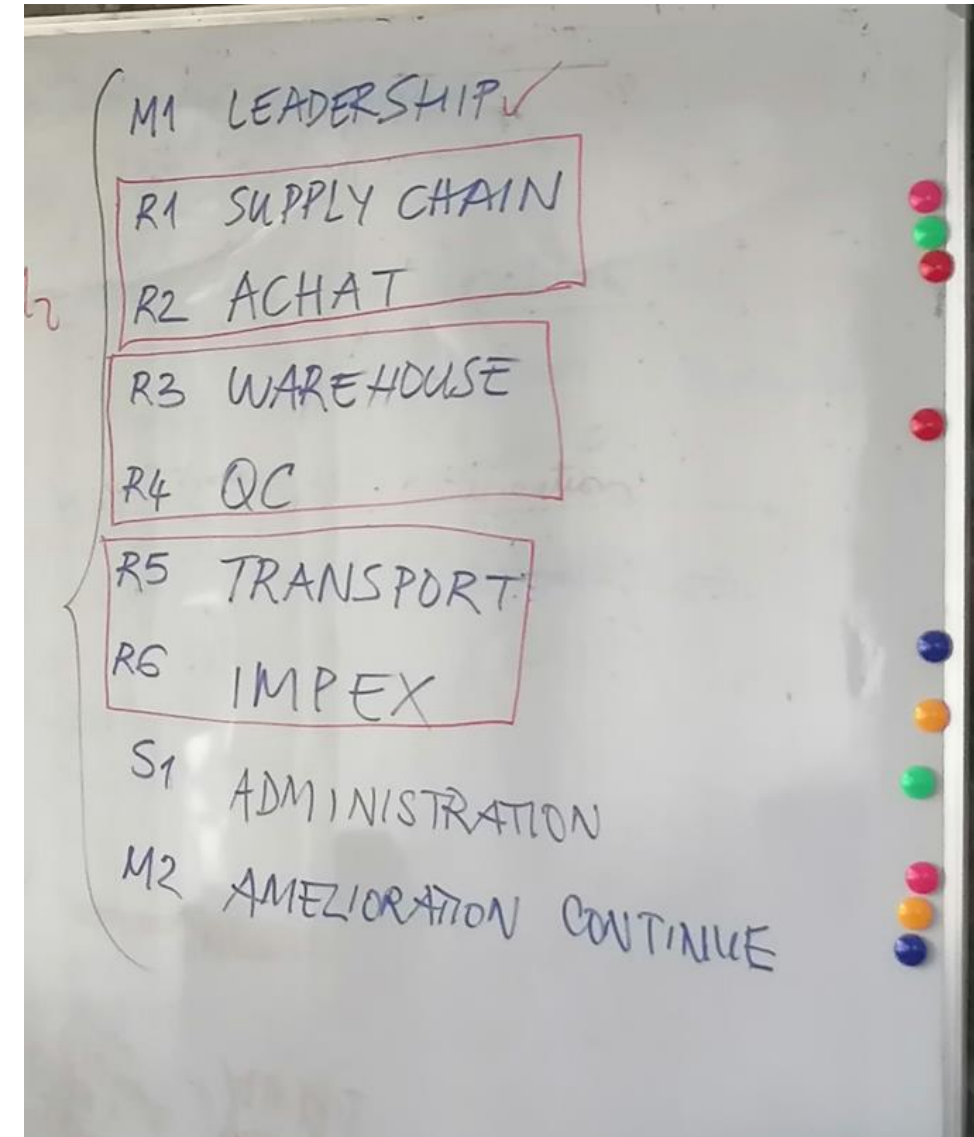 M1 LEADERSHIP ✓
R1 SUPPLY CHAIN
R2 ACHAT
R3 WAREHOUSE
R4 QC
R5 TRANSPORT
R6 IMPEX
S1 ADMINISTRATION
M2 AMELIORATION CONTINUE